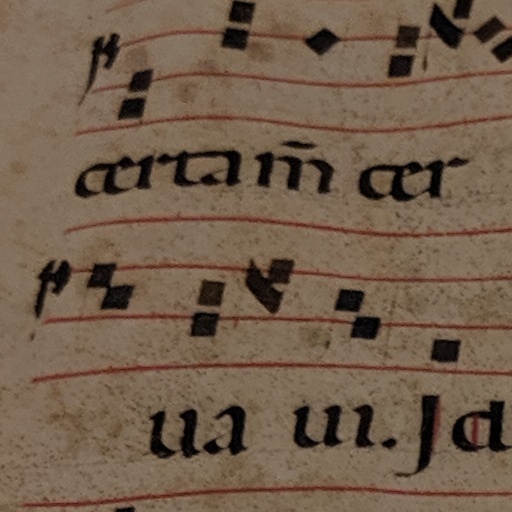 certam̄ cer
ua ui. Id